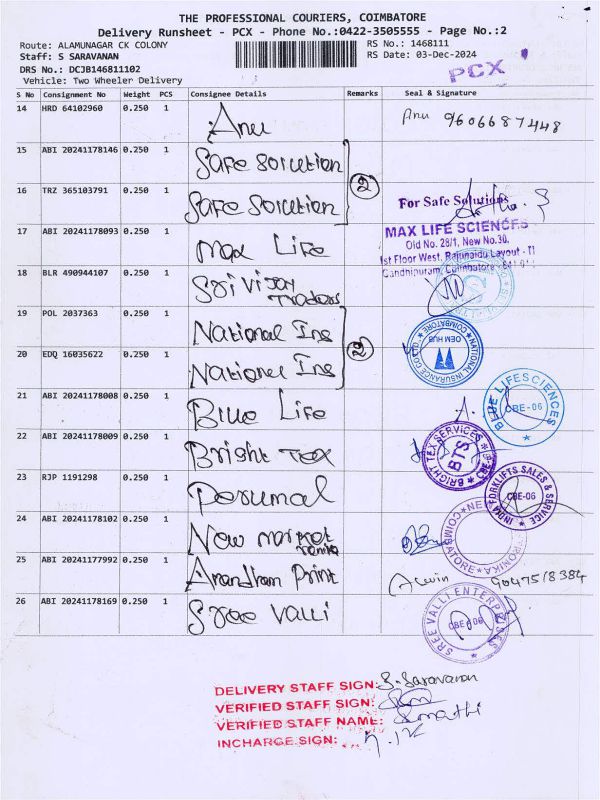 THE PROFESSIONAL COURIERS, COIMBATORE
Delivery Runsheet - PCX - Phone No.:0422-3505555 - Page No.:2
Route: ALAMUNAGAR CK COLONY
RS No.: 1468111
Staff: S SARAVANAN
RS Date: 03-Dec-2024
DRS No.: DCJB146811102
PCX
Vehicle: Two Wheeler Delivery
S No Consignment No Weight PCS Consignee Details Remarks Seal & Signature
14 HRD 64102960 0.250 1 Anu Anu 9606687448
15 ABI 20241178146 0.250 1 Safe Solution
2
16 TRZ 365103791 0.250 1 Safe Solution For Safe Solutions
17 ABI 20241178093 0.250 1 Max Life
MAX LIFE SCIENCES
Old No. 28/1, New No.30,
1st Floor West, Rajunaidu Layout - TI
Gandhipuram, Coimbatore - 641 012
18 BLR 490944107 0.250 1 Sri Vijay Traders
19 POL 2037363 0.250 1 National Ins
2
NATIONAL INSURANCE CO COIMBATORE
OEM HUB
20 EDQ 16035622 0.250 1 National Ins
21 ABI 20241178008 0.250 1 Blue Life
BLUE LIFESCIENCES
CBE-06
22 ABI 20241178009 0.250 1 Bright Tex
BRIGHT TEX SERVICES
BTS
CBE
23 RJP 1191298 0.250 1 Perumal
INDIA FORKLIFTS SALES & SERVICE
CBE-06
24 ABI 20241178102 0.250 1 New market
COIMBATORE
25 ABI 20241177992 0.250 1 Anandham Print 9047518384
26 ABI 20241178169 0.250 1 Sree Valli
SREE VALLI ENTERPRISES
CBE-06
DELIVERY STAFF SIGN: S. Saravanan
VERIFIED STAFF SIGN:
VERIFIED STAFF NAME:
INCHARGE SIGN: